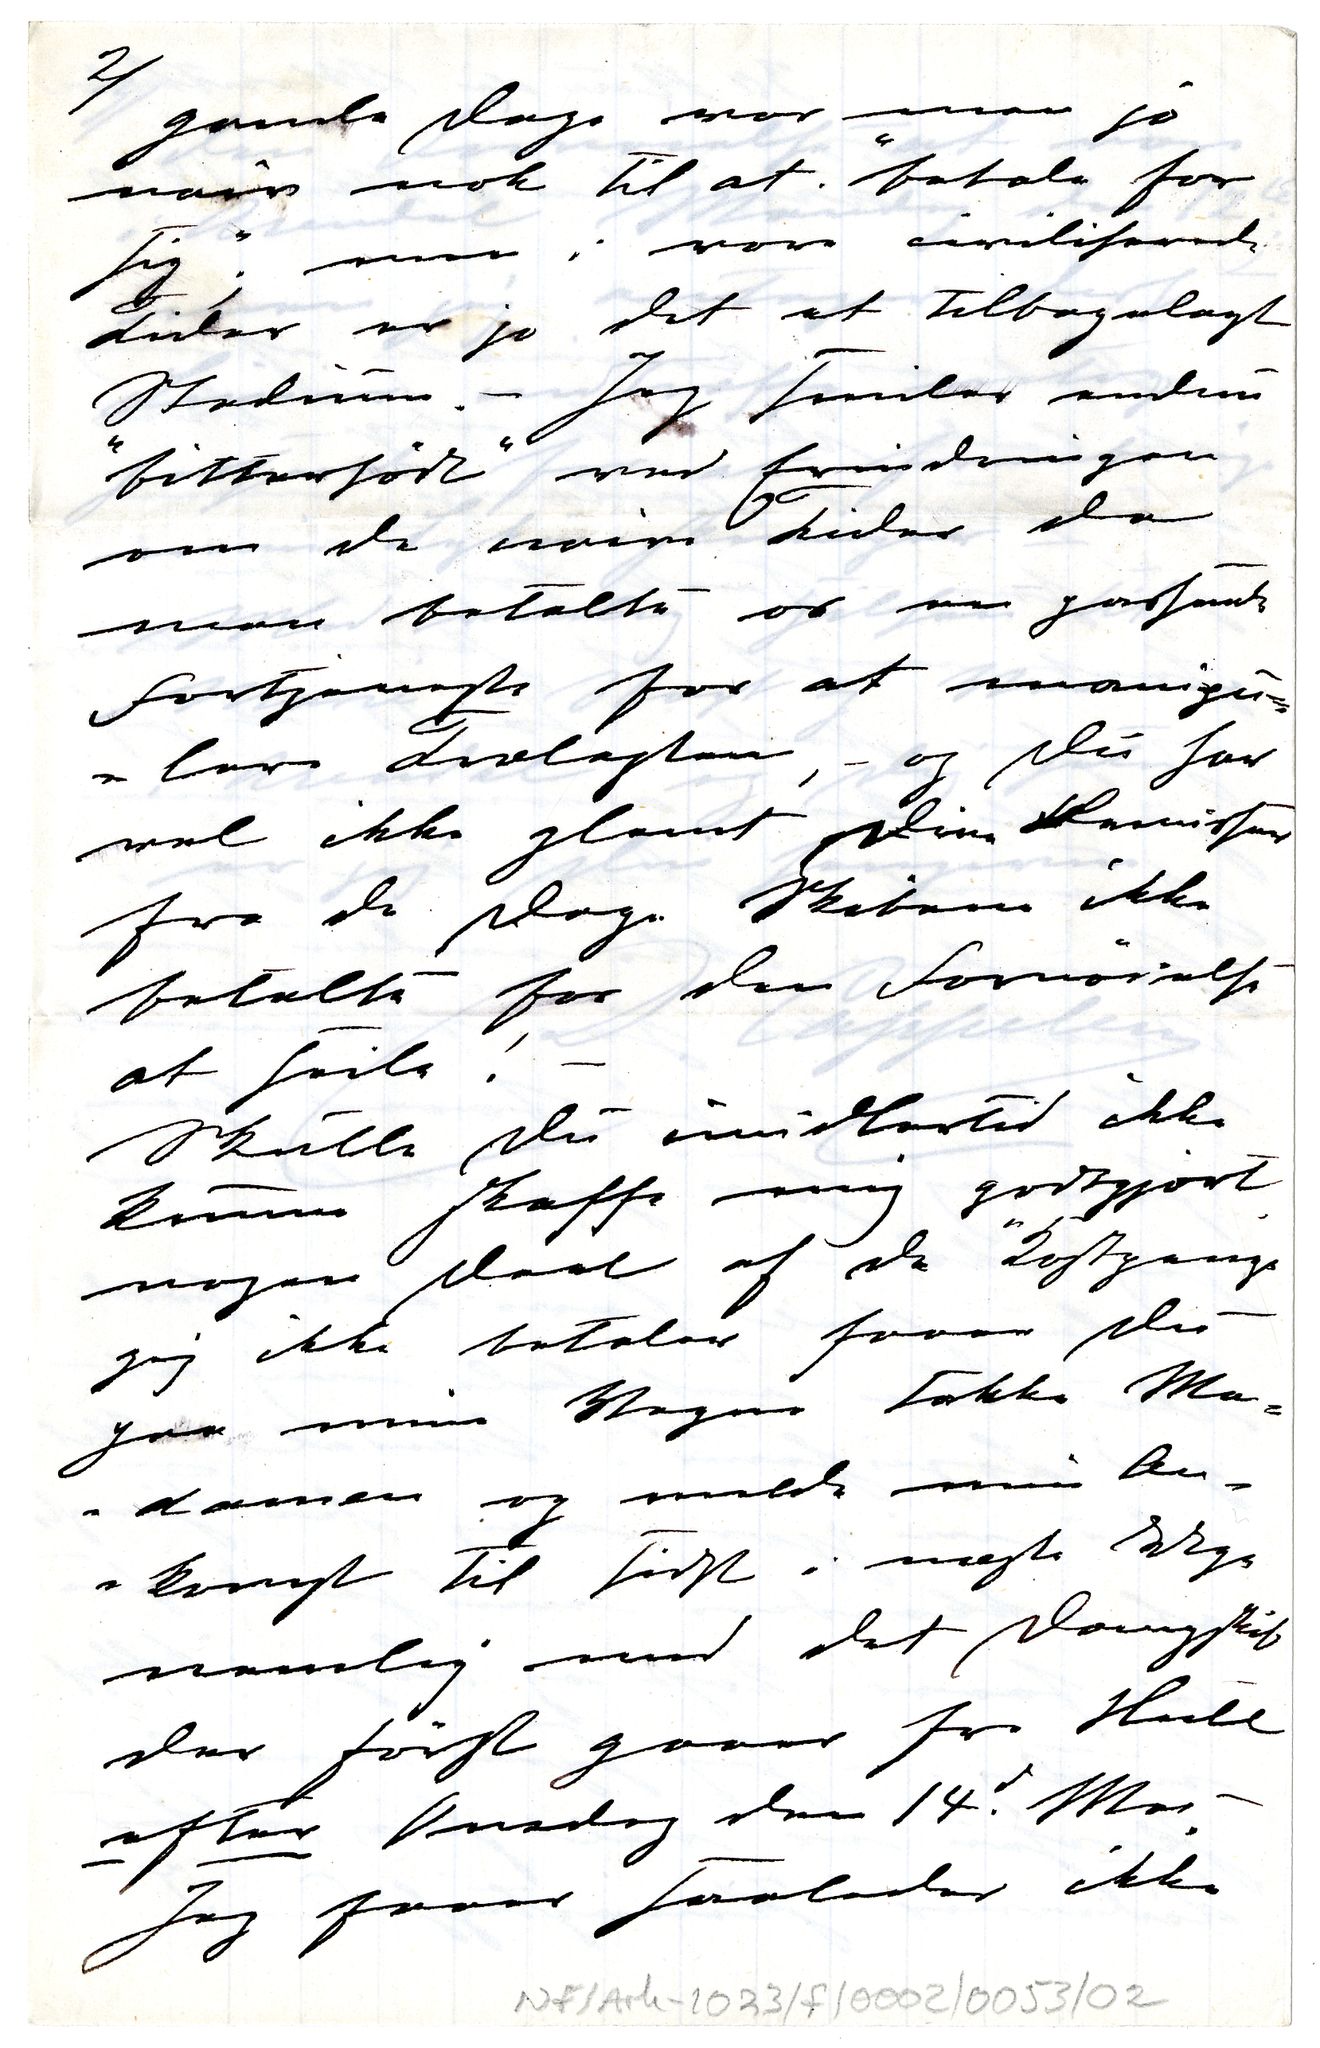 2/
gamle Dage var man jo
naiv nok til at "betale for
sig", men i vore civiliserede
Tider er jo det et tilbagelagt
Stadium. – Jeg smiler endnu
"bittersödt" ved Erindringen
om de naive Tider da
man betalte os en passende
Fortjeneste for at manipu=
=lere Trælasten, – og Du har
vel ikke glemt Dine
fra de Dage Skibene ikke
betalte for den Fornöielse
at seile! –
Skulde Du imidlertid ikke
kunne skaffe mig godtgjort
nogen Deel af de "Kostpenge
jeg ikke betaler faaer Du
paa mine Vegne takke Ma=
=damen og melde min An=
=komst til sidst i næste Uge
nemlig med det Dampskib
der först gaaer fra Hull
efter Onsdag den 14d. Mai. –
Jeg faaer saaledes ikke
NF/Ark-1023/f/0002/0053/02